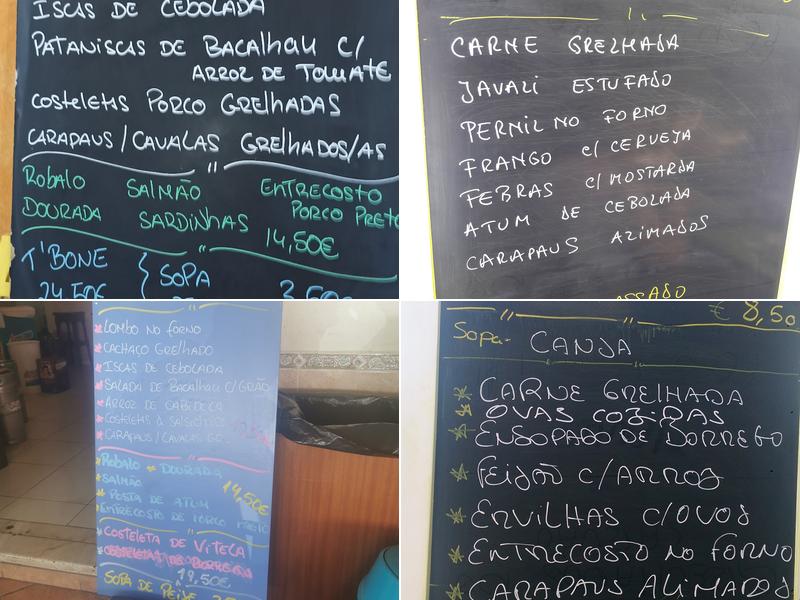 ISCAS DE CEBOLADA
PATANISCAS DE BACALHAU C/
ARROZ DE TOMATE
COSTELETAS PORCO GRELHADAS
CARAPAUS / CAVALAS GRELHADOS/AS
ROBALO SALMÃO ENTRECOSTO
PORCO PRETO
DOURADA SARDINHAS
14,50€
T'BONE { SOPA
24,50€ 3,50€
CARNE GRELHADA
JAVALI ESTUFADO
PERNIL NO FORNO
FRANGO C/ CERVEJA
FEBRAS C/ MOSTARDA
ATUM DE CEBOLADA
CARAPAUS ALIMADOS
ASSADO
LOMBO NO FORNO
CACHAÇO GRELHADO
ISCAS DE CEBOLADA
SALADA DE BACALHAU C/GRÃO
ARROZ DE CABIDELA
COSTELETA À SALSICHEIRO
CARAPAUS / CAVALAS GR
ROBALO * DOURADA
SALMÃO
POSTA DE ATUM
14,50€
ENTRECOSTO DE PORCO PRETO
COSTELETA DE VITELA
19,50€
SOPA DE PEIXE
€ 8,50
SOPA- CANJA
CARNE GRELHADA
OVAS COZIDAS
ENSOPADO DE BORREGO
FEIJÃO C/ARROZ
ERVILHAS C/OVOS
ENTRECOSTO NO FORNO
CARAPAUS ALIMADOS